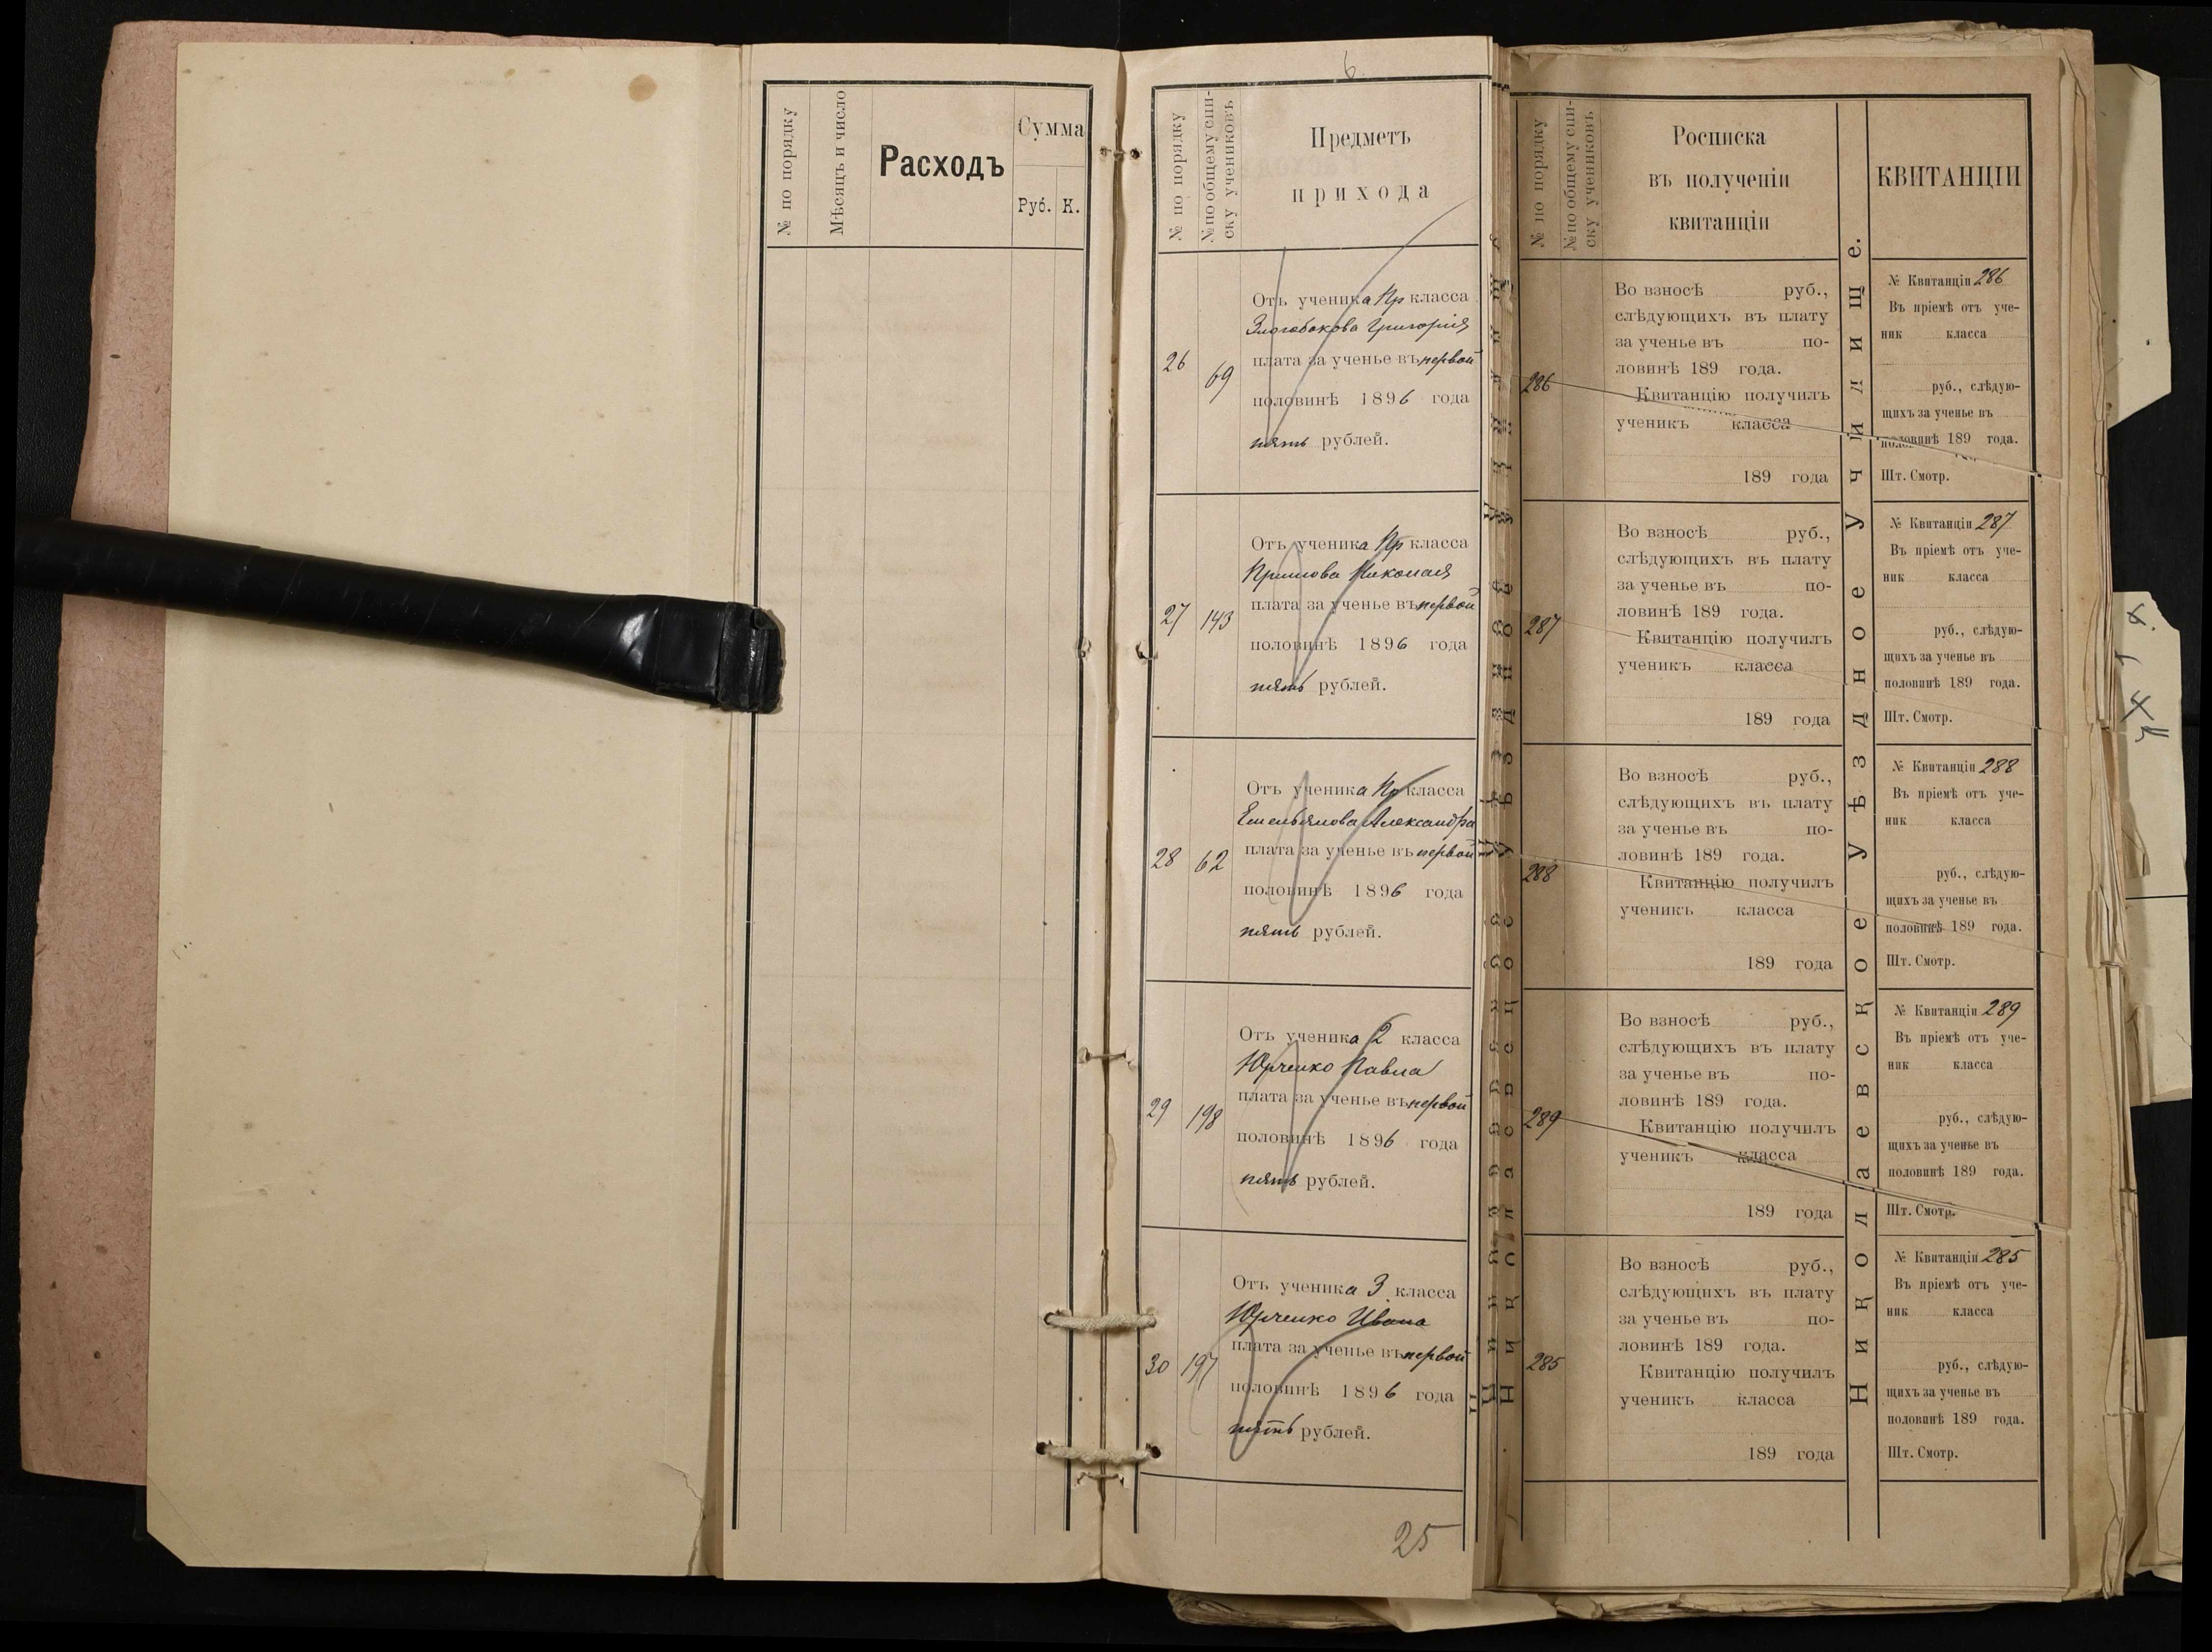 № по порядку
Мѣсяцъ и число
Расходъ
Сумма
Руб. К.
6
№ по порядку
№ по общему спи-
ску учениковъ
Предметъ
прихода
26
69
Отъ ученика Пр класса
Григорія
плата за ученье въ первой
половинѣ 1896 года
пять рублей.
27
143
Отъ ученика Пр класса
Николая
плата за ученье въ первой
половинѣ 1896 года
пять рублей.
28
62
Отъ ученика Пр класса
Емельянова Александра
плата за ученье въ первой
половинѣ 1896 года
пять рублей.
29
198
Отъ ученика 2 класса
Юрченко Павла
плата за ученье въ первой
половинѣ 1896 года
пять рублей.
30
197
Отъ ученика 3 класса
Юрченко Ивана
плата за ученье въ первой
половинѣ 1896 года
пять рублей.
25
№ по порядку
№ по общему спи-
ску учениковъ
Росписка
въ полученіи
квитанціи
286
Во взносѣ руб.,
слѣдующихъ въ плату
за ученье въ по-
ловинѣ 189 года.
Квитанцію получилъ
ученикъ класса
189 года
287
Во взносѣ руб.,
слѣдующихъ въ плату
за ученье въ по-
ловинѣ 189 года.
Квитанцію получилъ
ученикъ класса
189 года
288
Во взносѣ руб.,
слѣдующихъ въ плату
за ученье въ по-
ловинѣ 189 года.
Квитанцію получилъ
ученикъ класса
189 года
289
Во взносѣ руб.,
слѣдующихъ въ плату
за ученье въ по-
ловинѣ 189 года.
Квитанцію получилъ
ученикъ класса
189 года
285
Во взносѣ руб.,
слѣдующихъ въ плату
за ученье въ по-
ловинѣ 189 года.
Квитанцію получилъ
ученикъ класса
189 года
Николаевское Уѣздное Училище.
КВИТАНЦІИ
№ Квитанціи 286
Въ пріемѣ отъ уче-
ник класса
руб., слѣдую-
щихъ за ученье въ
половинѣ 189 года.
Шт. Смотр.
№ Квитанціи 287
Въ пріемѣ отъ уче-
ник класса
руб., слѣдую-
щихъ за ученье въ
половинѣ 189 года.
Шт. Смотр.
№ Квитанціи 288
Въ пріемѣ отъ уче-
ник класса
руб., слѣдую-
щихъ за ученье въ
половинѣ 189 года.
Шт. Смотр.
№ Квитанціи 289
Въ пріемѣ отъ уче-
ник класса
руб., слѣдую-
щихъ за ученье въ
половинѣ 189 года.
Шт. Смотр.
№ Квитанціи 285
Въ пріемѣ отъ уче-
ник класса
руб., слѣдую-
щихъ за ученье въ
половинѣ 189 года.
Шт. Смотр.